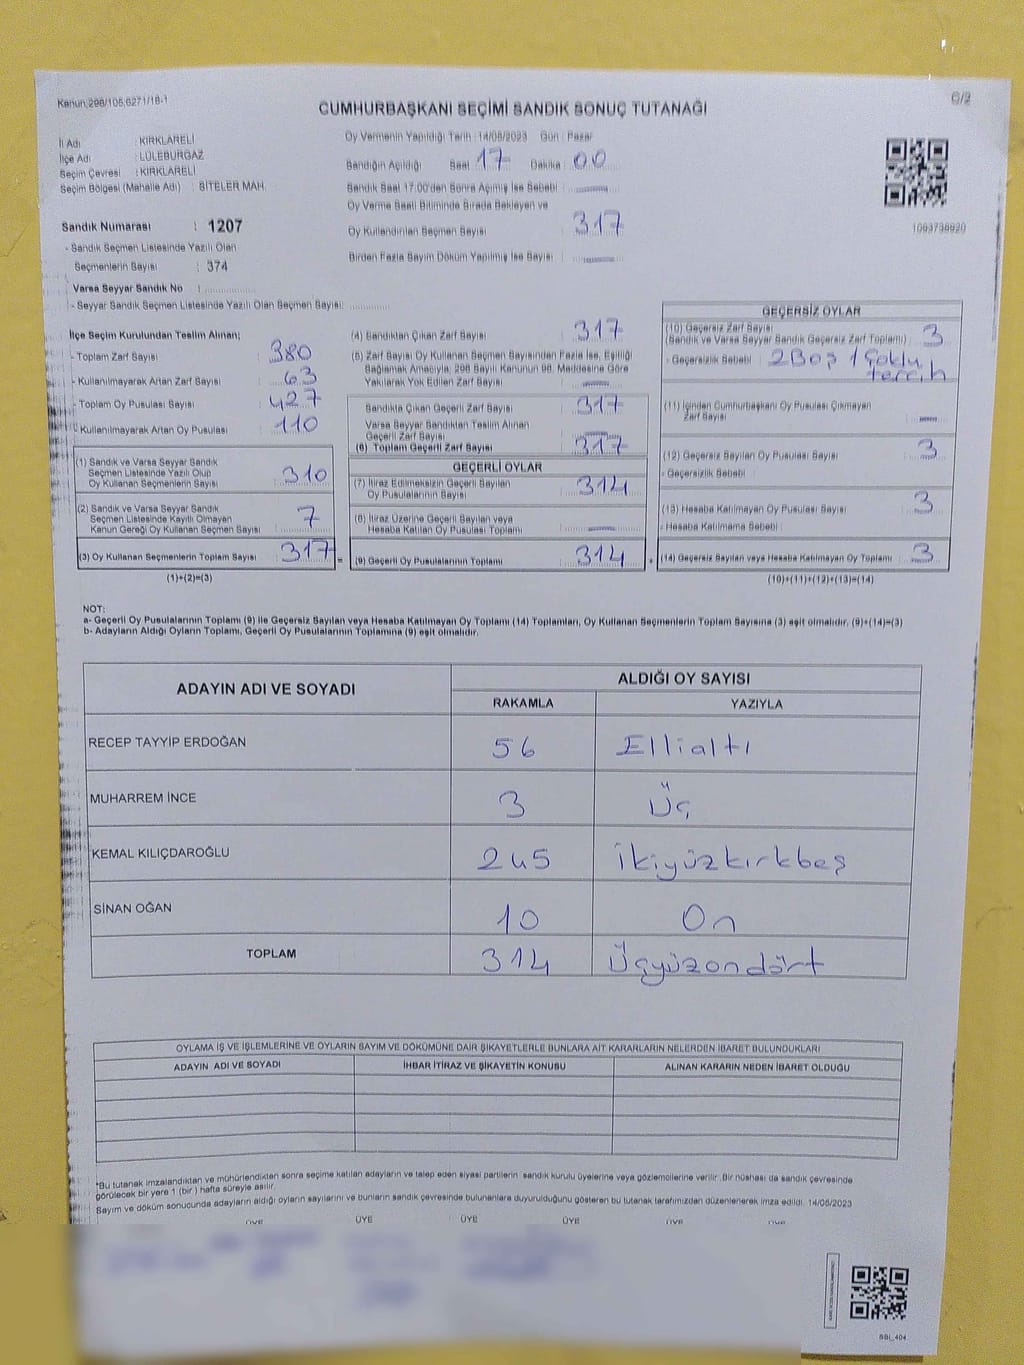 Kanun;298/105,6271/18-1
6/2
CUMHURBAŞKANI SEÇİMİ SANDIK SONUÇ TUTANAĞI
İl Adı : KIRKLARELİ
İlçe Adı : LÜLEBURGAZ
Seçim Çevresi : KIRKLARELİ
Seçim Bölgesi (Mahalle Adı) : SİTELER MAH.
Sandık Numarası : 1207
- Sandık Seçmen Listesinde Yazılı Olan
Seçmenlerin Sayısı : 374
Varsa Seyyar Sandık No :
- Seyyar Sandık Seçmen Listesinde Yazılı Olan Seçmen Sayısı:
Oy Vermenin Yapıldığı Tarih :14/05/2023 Gün : Pazar
Sandığın Açıldığı Saat 17 Dakika : 00
Sandık Saat 17:00'den Sonra Açılmış İse Sebebi :
Oy Verme Saati Bitiminde Sırada Bekleyen ve
Oy Kullandırılan Seçmen Sayısı : 317
Birden Fazla Sayım Döküm Yapılmış İse Sayısı :
1093739920
İlçe Seçim Kurulundan Teslim Alınan;
- Toplam Zarf Sayısı : 380
- Kullanılmayarak Artan Zarf Sayısı : 63
- Toplam Oy Pusulası Sayısı : 427
- Kullanılmayarak Artan Oy Pusulası : 110
(1) Sandık ve Varsa Seyyar Sandık
Seçmen Listesinde Yazılı Olup
Oy Kullanan Seçmenlerin Sayısı : 310
(2) Sandık ve Varsa Seyyar Sandık
Seçmen Listesinde Kayıtlı Olmayan
Kanun Gereği Oy Kullanan Seçmen Sayısı : 7
(3) Oy Kullanan Seçmenlerin Toplam Sayısı : 317 =
(1)+(2)=(3)
(4) Sandıktan Çıkan Zarf Sayısı : 317
(5) Zarf Sayısı Oy Kullanan Seçmen Sayısından Fazla İse, Eşitliği
Sağlamak Amacıyla, 298 Sayılı Kanunun 98. Maddesine Göre
Yakılarak Yok Edilen Zarf Sayısı :
Sandıkta Çıkan Geçerli Zarf Sayısı : 317
Varsa Seyyar Sandıktan Teslim Alınan
Geçerli Zarf Sayısı :
(6) Toplam Geçerli Zarf Sayısı : 317
GEÇERLİ OYLAR
(7) İtiraz Edilmeksizin Geçerli Sayılan
Oy Pusulalarının Sayısı : 314
(8) İtiraz Üzerine Geçerli Sayılan veya
Hesaba Katılan Oy Pusulası Toplamı :
(9) Geçerli Oy Pusulalarının Toplamı : 314 +
GEÇERSİZ OYLAR
(10) Geçersiz Zarf Sayısı
(Sandık ve Varsa Seyyar Sandık Geçersiz Zarf Toplamı) : 3
- Geçersizlik Sebebi : 2 Boş 1 Çoklu
tercih
(11) İçinden Cumhurbaşkanı Oy Pusulası Çıkmayan
Zarf Sayısı :
(12) Geçersiz Sayılan Oy Pusulası Sayısı : 3
- Geçersizlik Sebebi :
(13) Hesaba Katılmayan Oy Pusulası Sayısı : 3
- Hesaba Katılmama Sebebi :
(14) Geçersiz Sayılan veya Hesaba Katılmayan Oy Toplamı : 3
(10)+(11)+(12)+(13)=(14)
NOT:
a- Geçerli Oy Pusulalarının Toplamı (9) ile Geçersiz Sayılan veya Hesaba Katılmayan Oy Toplamı (14) Toplamları, Oy Kullanan Seçmenlerin Toplam Sayısına (3) eşit olmalıdır. (9)+(14)=(3)
b- Adayların Aldığı Oyların Toplamı, Geçerli Oy Pusulalarının Toplamına (9) eşit olmalıdır.
ADAYIN ADI VE SOYADI ALDIĞI OY SAYISI
RAKAMLA YAZIYLA
RECEP TAYYİP ERDOĞAN 56 Ellialtı
MUHARREM İNCE 3 Üç
KEMAL KILIÇDAROĞLU 245 İkiyüzkırkbeş
SİNAN OĞAN 10 On
TOPLAM 314 Üçyüzondört
OYLAMA İŞ VE İŞLEMLERİNE VE OYLARIN SAYIM VE DÖKÜMÜNE DAİR ŞİKAYETLERLE BUNLARA AİT KARARLARIN NELERDEN İBARET BULUNDUKLARI
ADAYIN ADI VE SOYADI İHBAR İTİRAZ VE ŞİKAYETİN KONUSU ALINAN KARARIN NEDEN İBARET OLDUĞU
*Bu tutanak imzalandıktan ve mühürlendikten sonra seçime katılan adayların ve talep eden siyasi partilerin sandık kurulu üyelerine veya gözlemcilerine verilir. Bir nüshası da sandık çevresinde
görülecek bir yere 1 (bir ) hafta süreyle asılır.
Sayım ve döküm sonucunda adayların aldığı oyların sayılarını ve bunların sandık çevresinde bulunanlara duyurulduğunu gösteren bu tutanak tarafımızdan düzenlenerek imza edildi. 14/05/2023
ÜYE ÜYE ÜYE ÜYE ÜYE ÜYE
SBİ_404